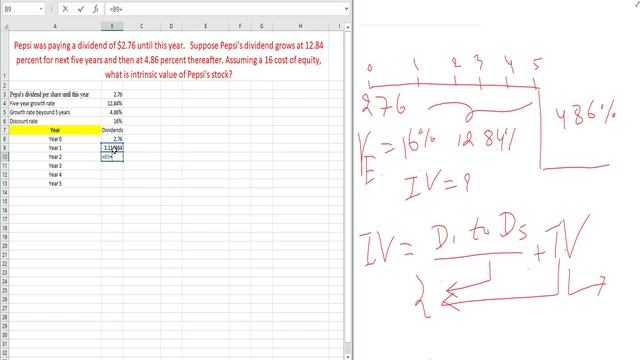 B9
=B9+
A
B
C
D
E
F
G
H
I
Pepsi was paying a dividend of $2.76 until this year. Suppose Pepsi's dividend grows at 12.84
percent for next five years and then at 4.86 percent thereafter. Assuming a 16 cost of equity,
what is intrinsic value of Pepsi's stock?
Pepsi's dividend per share until this year 2.76
Five-year growth rate 12.84%
Growth rate beyound 5 years 4.86%
Discount rate 16%
Year Dividends
Year 0 2.76
Year 1
Year 2 =B9+
Year 3
Year 4
Year 5
0 1 2 3 4 5
276
4.86%
16% 12.84%
IV = ?
IV = D1 to D5 + IV